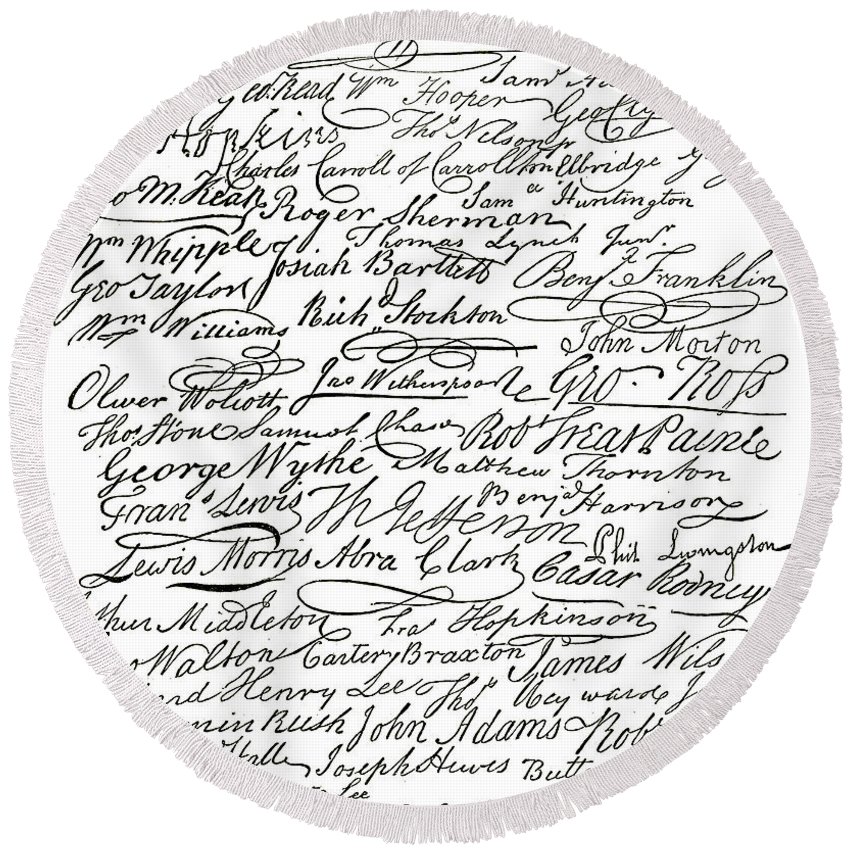 Geo. Read Wm Hooper Sam
Hopkins Thos Nelson jr Geo Cly
Charles Carroll of Carrollton Elbridge
M. Kean Roger Sherman Sam Huntington
Wm Whipple Josiah Bartlett Thomas Lynch Junr.
Geo Taylor Benj Franklin
Wm Williams Rich Stockton John Morton
Oliver Wolcott Jno Witherspoon Geo. Ross
Thos Stone Samuel Chase Robt Treat Paine
George Wythe Matthew Thornton
Frans Lewis Th Jefferson Benja Harrison
Lewis Morris Abra Clark Phil Livingston
Cæsar Rodney
thur Middleton Fras Hopkinson
Walton Carter Braxton James Wils
ard Henry Lee Thos Heyward J
min Rush John Adams Rob
Hall Joseph Hewes Butt
Lee